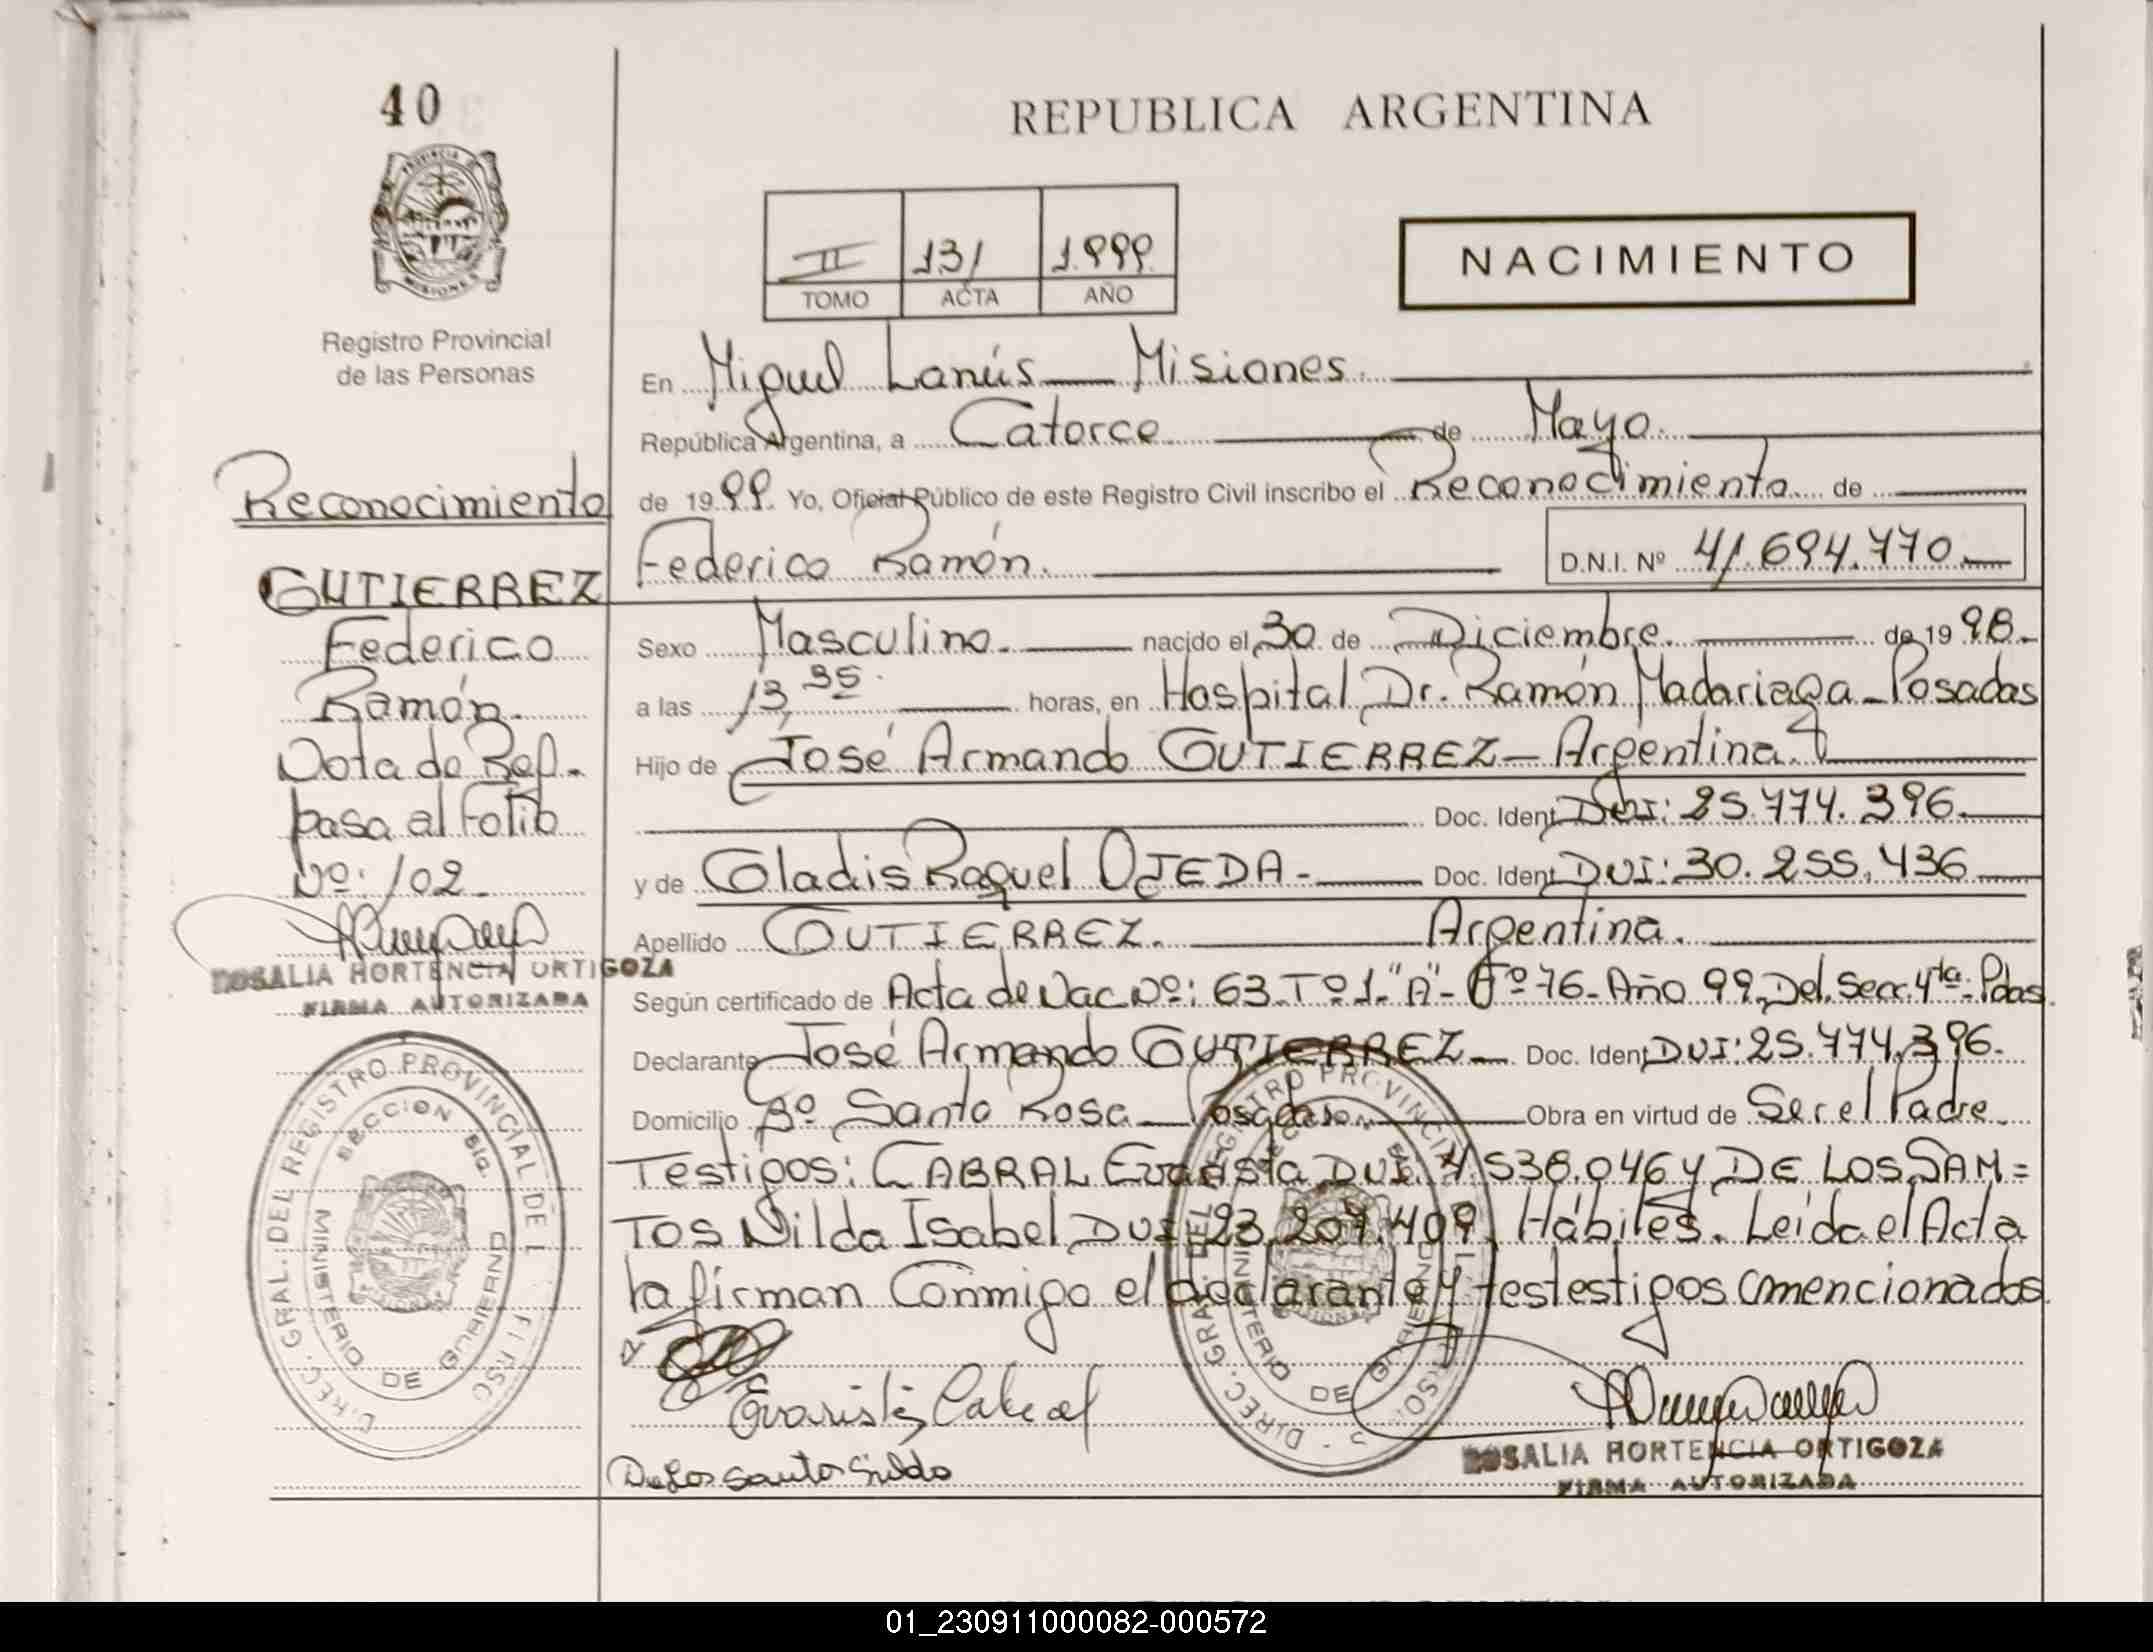 40
REPUBLICA ARGENTINA
II 131 1.999.
TOMO ACTA AÑO
NACIMIENTO
Registro Provincial
de las Personas
En Miguel Lanús Misiones.
República Argentina, a Catorce de Mayo.
de 1999. Yo, Oficial Público de este Registro Civil inscribo el Reconocimiento de
Federico Ramón. D.N.I. Nº 41.694.770.
Reconocimiento
GUTIERREZ
Federico
Ramón.
Nota de Ref.
pasa al Folio
Nº: 102.
ROSALIA HORTENCIA ORTIGOZA
FIRMA AUTORIZADA
DIREC. GRAL. DEL REGISTRO PROVINCIAL DE
SECCION
MINISTERIO DE GOBIERNO
Sexo Masculino. nacido el 30 de Diciembre. de 1998.
a las 13,35 horas, en Hospital Dr. Ramón Madariaga - Posadas
Hijo de José Armando GUTIERREZ - Argentina.
Doc. Ident. DNI: 25.774.396.
y de Gladis Raquel OJEDA - Doc. Ident. DNI: 30.255.436
Apellido GUTIERREZ. Argentina.
Según certificado de Acta de Nac Nº: 63. Tº 1. "A" - Fº 76 - Año 99. Del. Secc. 4ta. Pdas.
Declarante José Armando GUTIERREZ Doc. Ident. DNI: 25.774.396.
Domicilio Bº Santa Rosa - Posadas Obra en virtud de Ser el Padre.
Testigos: CABRAL Evarista DNI. 4.538.046 y DE LOS SAN=
TOS Nilda Isabel DNI 23.207.409. Hábiles. Leida el Acta
la firman Conmigo el declarante y testestigos mencionados
Evarista Cabral
De Los Santos Nilda
DIREC. GRAL. DEL REGISTRO PROVINCIAL
MINISTERIO DE GOBIERNO
ROSALIA HORTENCIA ORTIGOZA
FIRMA AUTORIZADA
01_230911000082-000572